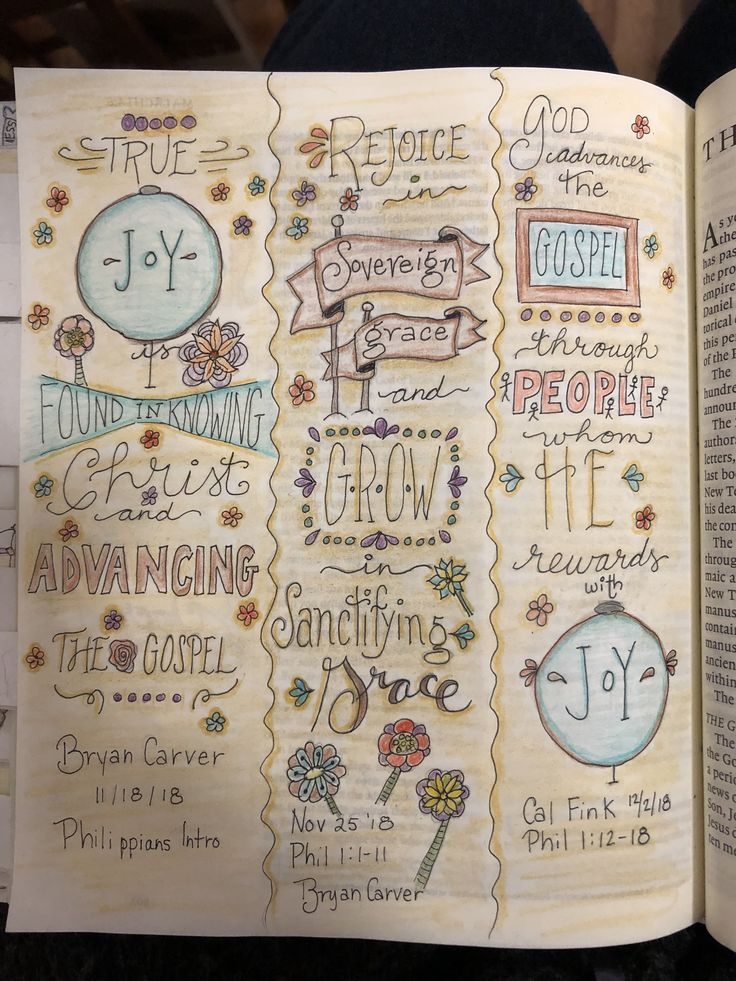 TRUE
JOY
is
FOUND IN KNOWING
Christ
and
ADVANCING
THE GOSPEL
Bryan Carver
11/18/18
Philippians Intro
REJOICE
in
Sovereign
grace
and
GROW
in
Sanctifying
Grace
Nov 25 '18
Phil 1:1-11
Bryan Carver
GOD
advances
the
GOSPEL
through
PEOPLE
whom
HE
rewards
with
JOY
Cal Fink 12/2/18
Phil 1:12-18
TH
As yo
the
has pas
the pro
empire
Daniel
torical
this pe
of the P
The
hundre
announ
The
author
letters,
last bo
New Te
his dea
the con
The
throug
maic a
New T
manus
contai
manus
ancien
within
The
THE G
The
the Go
a perio
news o
Son, Je
Jesus d
ten me